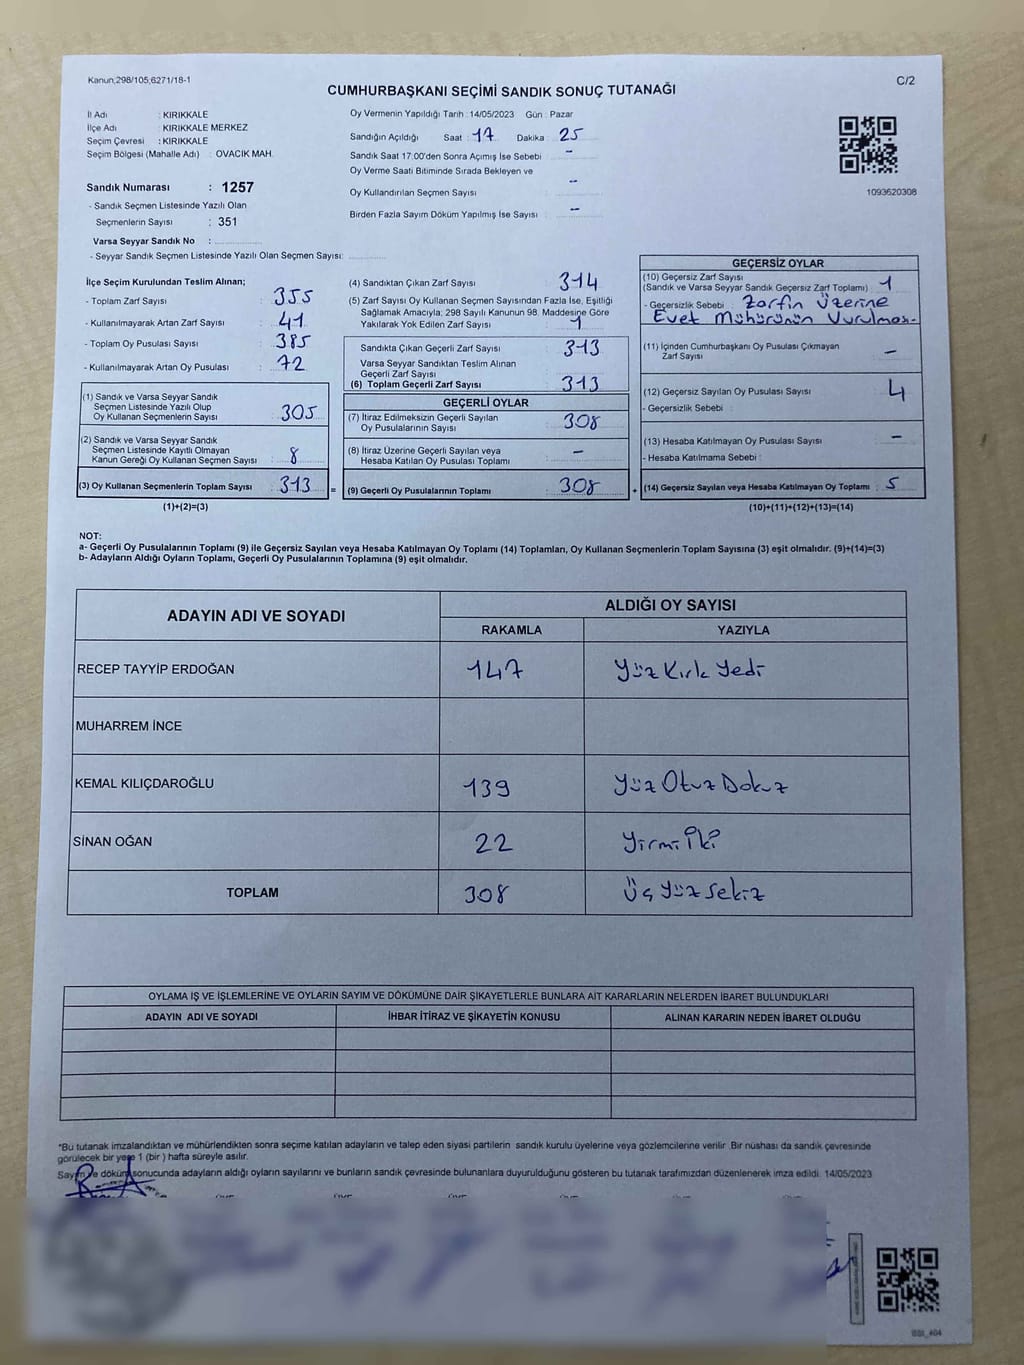 Kanun;298/105,6271/18-1
C/2
CUMHURBAŞKANI SEÇİMİ SANDIK SONUÇ TUTANAĞI
İl Adı : KIRIKKALE
İlçe Adı : KIRIKKALE MERKEZ
Seçim Çevresi : KIRIKKALE
Seçim Bölgesi (Mahalle Adı) : OVACIK MAH.
Sandık Numarası : 1257
- Sandık Seçmen Listesinde Yazılı Olan
Seçmenlerin Sayısı : 351
Varsa Seyyar Sandık No :
- Seyyar Sandık Seçmen Listesinde Yazılı Olan Seçmen Sayısı:
Oy Vermenin Yapıldığı Tarih : 14/05/2023 Gün : Pazar
Sandığın Açıldığı Saat : 17 Dakika : 25
Sandık Saat 17.00'den Sonra Açımış İse Sebebi : -
Oy Verme Saati Bitiminde Sırada Bekleyen ve
Oy Kullandırılan Seçmen Sayısı : -
Birden Fazla Sayım Döküm Yapılmış İse Sayısı : -
1093620308
İlçe Seçim Kurulundan Teslim Alınan;
- Toplam Zarf Sayısı : 355
- Kullanılmayarak Artan Zarf Sayısı : 41
- Toplam Oy Pusulası Sayısı : 385
- Kullanılmayarak Artan Oy Pusulası : 72
(1) Sandık ve Varsa Seyyar Sandık
Seçmen Listesinde Yazılı Olup
Oy Kullanan Seçmenlerin Sayısı : 305
(2) Sandık ve Varsa Seyyar Sandık
Seçmen Listesinde Kayıtlı Olmayan
Kanun Gereği Oy Kullanan Seçmen Sayısı : 8
(3) Oy Kullanan Seçmenlerin Toplam Sayısı : 313 =
(1)+(2)=(3)
(4) Sandıktan Çıkan Zarf Sayısı : 314
(5) Zarf Sayısı Oy Kullanan Seçmen Sayısından Fazla İse, Eşitliği
Sağlamak Amacıyla; 298 Sayılı Kanunun 98. Maddesine Göre
Yakılarak Yok Edilen Zarf Sayısı : 1
Sandıkta Çıkan Geçerli Zarf Sayısı : 313
Varsa Seyyar Sandıktan Teslim Alınan
Geçerli Zarf Sayısı :
(6) Toplam Geçerli Zarf Sayısı : 313
GEÇERLİ OYLAR
(7) İtiraz Edilmeksizin Geçerli Sayılan
Oy Pusulalarının Sayısı : 308
(8) İtiraz Üzerine Geçerli Sayılan veya
Hesaba Katılan Oy Pusulası Toplamı : -
(9) Geçerli Oy Pusulalarının Toplamı : 308 +
GEÇERSİZ OYLAR
(10) Geçersiz Zarf Sayısı
(Sandık ve Varsa Seyyar Sandık Geçersiz Zarf Toplamı) : 1
- Geçersizlik Sebebi : Zarfın Üzerine
Evet Mühürünün Vurulması-
(11) İçinden Cumhurbaşkanı Oy Pusulası Çıkmayan
Zarf Sayısı : -
(12) Geçersiz Sayılan Oy Pusulası Sayısı : 4
- Geçersizlik Sebebi :
(13) Hesaba Katılmayan Oy Pusulası Sayısı : -
- Hesaba Katılmama Sebebi :
(14) Geçersiz Sayılan veya Hesaba Katılmayan Oy Toplamı : 5
(10)+(11)+(12)+(13)=(14)
NOT:
a- Geçerli Oy Pusulalarının Toplamı (9) ile Geçersiz Sayılan veya Hesaba Katılmayan Oy Toplamı (14) Toplamları, Oy Kullanan Seçmenlerin Toplam Sayısına (3) eşit olmalıdır. (9)+(14)=(3)
b- Adayların Aldığı Oyların Toplamı, Geçerli Oy Pusulalarının Toplamına (9) eşit olmalıdır.
ADAYIN ADI VE SOYADI
ALDIĞI OY SAYISI
RAKAMLA YAZIYLA
RECEP TAYYİP ERDOĞAN 147 Yüz Kırk Yedi
MUHARREM İNCE
KEMAL KILIÇDAROĞLU 139 Yüz Otuz Dokuz
SİNAN OĞAN 22 Yirmi İki
TOPLAM 308 Üç Yüz Sekiz
OYLAMA İŞ VE İŞLEMLERİNE VE OYLARIN SAYIM VE DÖKÜMÜNE DAİR ŞİKAYETLERLE BUNLARA AİT KARARLARIN NELERDEN İBARET BULUNDUKLARI
ADAYIN ADI VE SOYADI İHBAR İTİRAZ VE ŞİKAYETİN KONUSU ALINAN KARARIN NEDEN İBARET OLDUĞU
*Bu tutanak imzalandıktan ve mühürlendikten sonra seçime katılan adayların ve talep eden siyasi partilerin sandık kurulu üyelerine veya gözlemcilerine verilir. Bir nüshası da sandık çevresinde
görülecek bir yere 1 (bir ) hafta süreyle asılır.
Sayım ve döküm sonucunda adayların aldığı oyların sayılarını ve bunların sandık çevresinde bulunanlara duyurulduğunu gösteren bu tutanak tarafımızdan düzenlenerek imza edildi. 14/05/2023